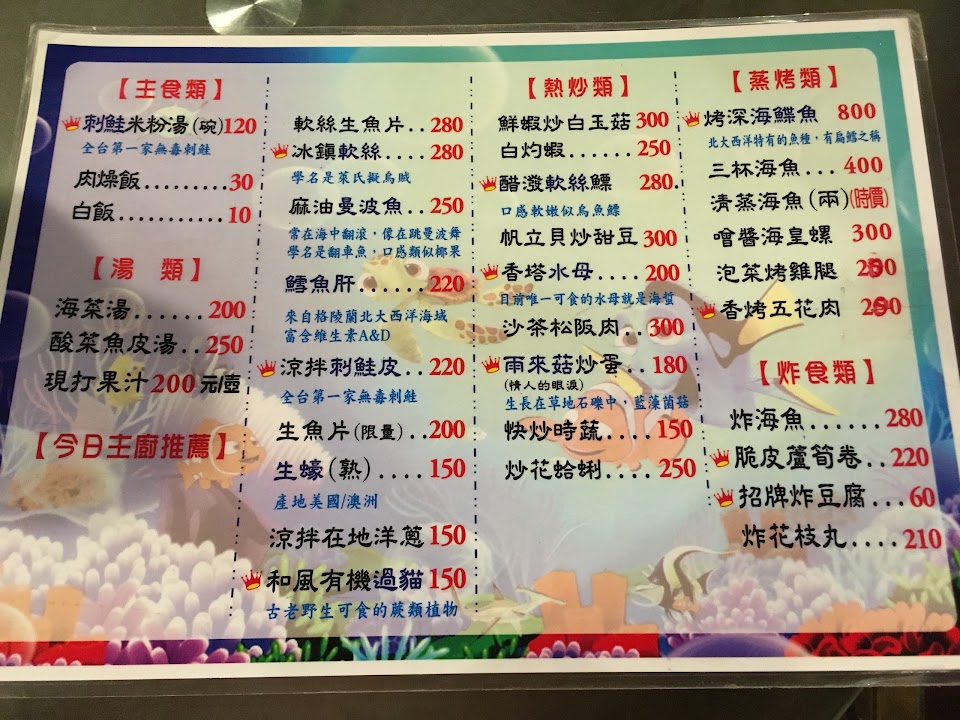 【主食類】
刺鮭米粉湯(碗)120
全台第一家無毒刺鮭
肉燥飯.........30
白飯...........10
【湯 類】
海菜湯......200
酸菜魚皮湯..250
現打果汁200元/壺
【今日主廚推薦】
軟絲生魚片..280
冰鎮軟絲....280
學名是萊氏擬烏賊
麻油曼波魚..250
常在海中翻滾,像在跳曼波舞
學名是翻車魚,口感類似椰果
鱈魚肝......220
來自格陵蘭北大西洋海域
富含維生素A&D
涼拌刺鮭皮..220
全台第一家無毒刺鮭
生魚片(限量)..200
生蠔(熟)....150
產地美國/澳洲
涼拌在地洋蔥150
和風有機過貓150
古老野生可食的蕨類植物
【熱炒類】
鮮蝦炒白玉菇300
白灼蝦......250
醋潑軟絲鰾 280.
口感軟嫩似烏魚鰾
帆立貝炒甜豆300
香塔水母....200
目前唯一可食的水母就是海蜇
沙茶松阪肉..300
雨來菇炒蛋..180
(情人的眼淚)
生長在草地石礫中,藍藻菌菇
快炒時蔬....150
炒花蛤蜊....250
【蒸烤類】
烤深海鰈魚 800
北大西洋特有的魚種,有扁鱈之稱
三杯海魚...400
清蒸海魚(兩)(時價)
噌醬海皇螺 300
泡菜烤雞腿
香烤五花肉
【炸食類】
炸海魚......280
脆皮蘆筍卷..220
招牌炸豆腐...60
炸花枝丸....210